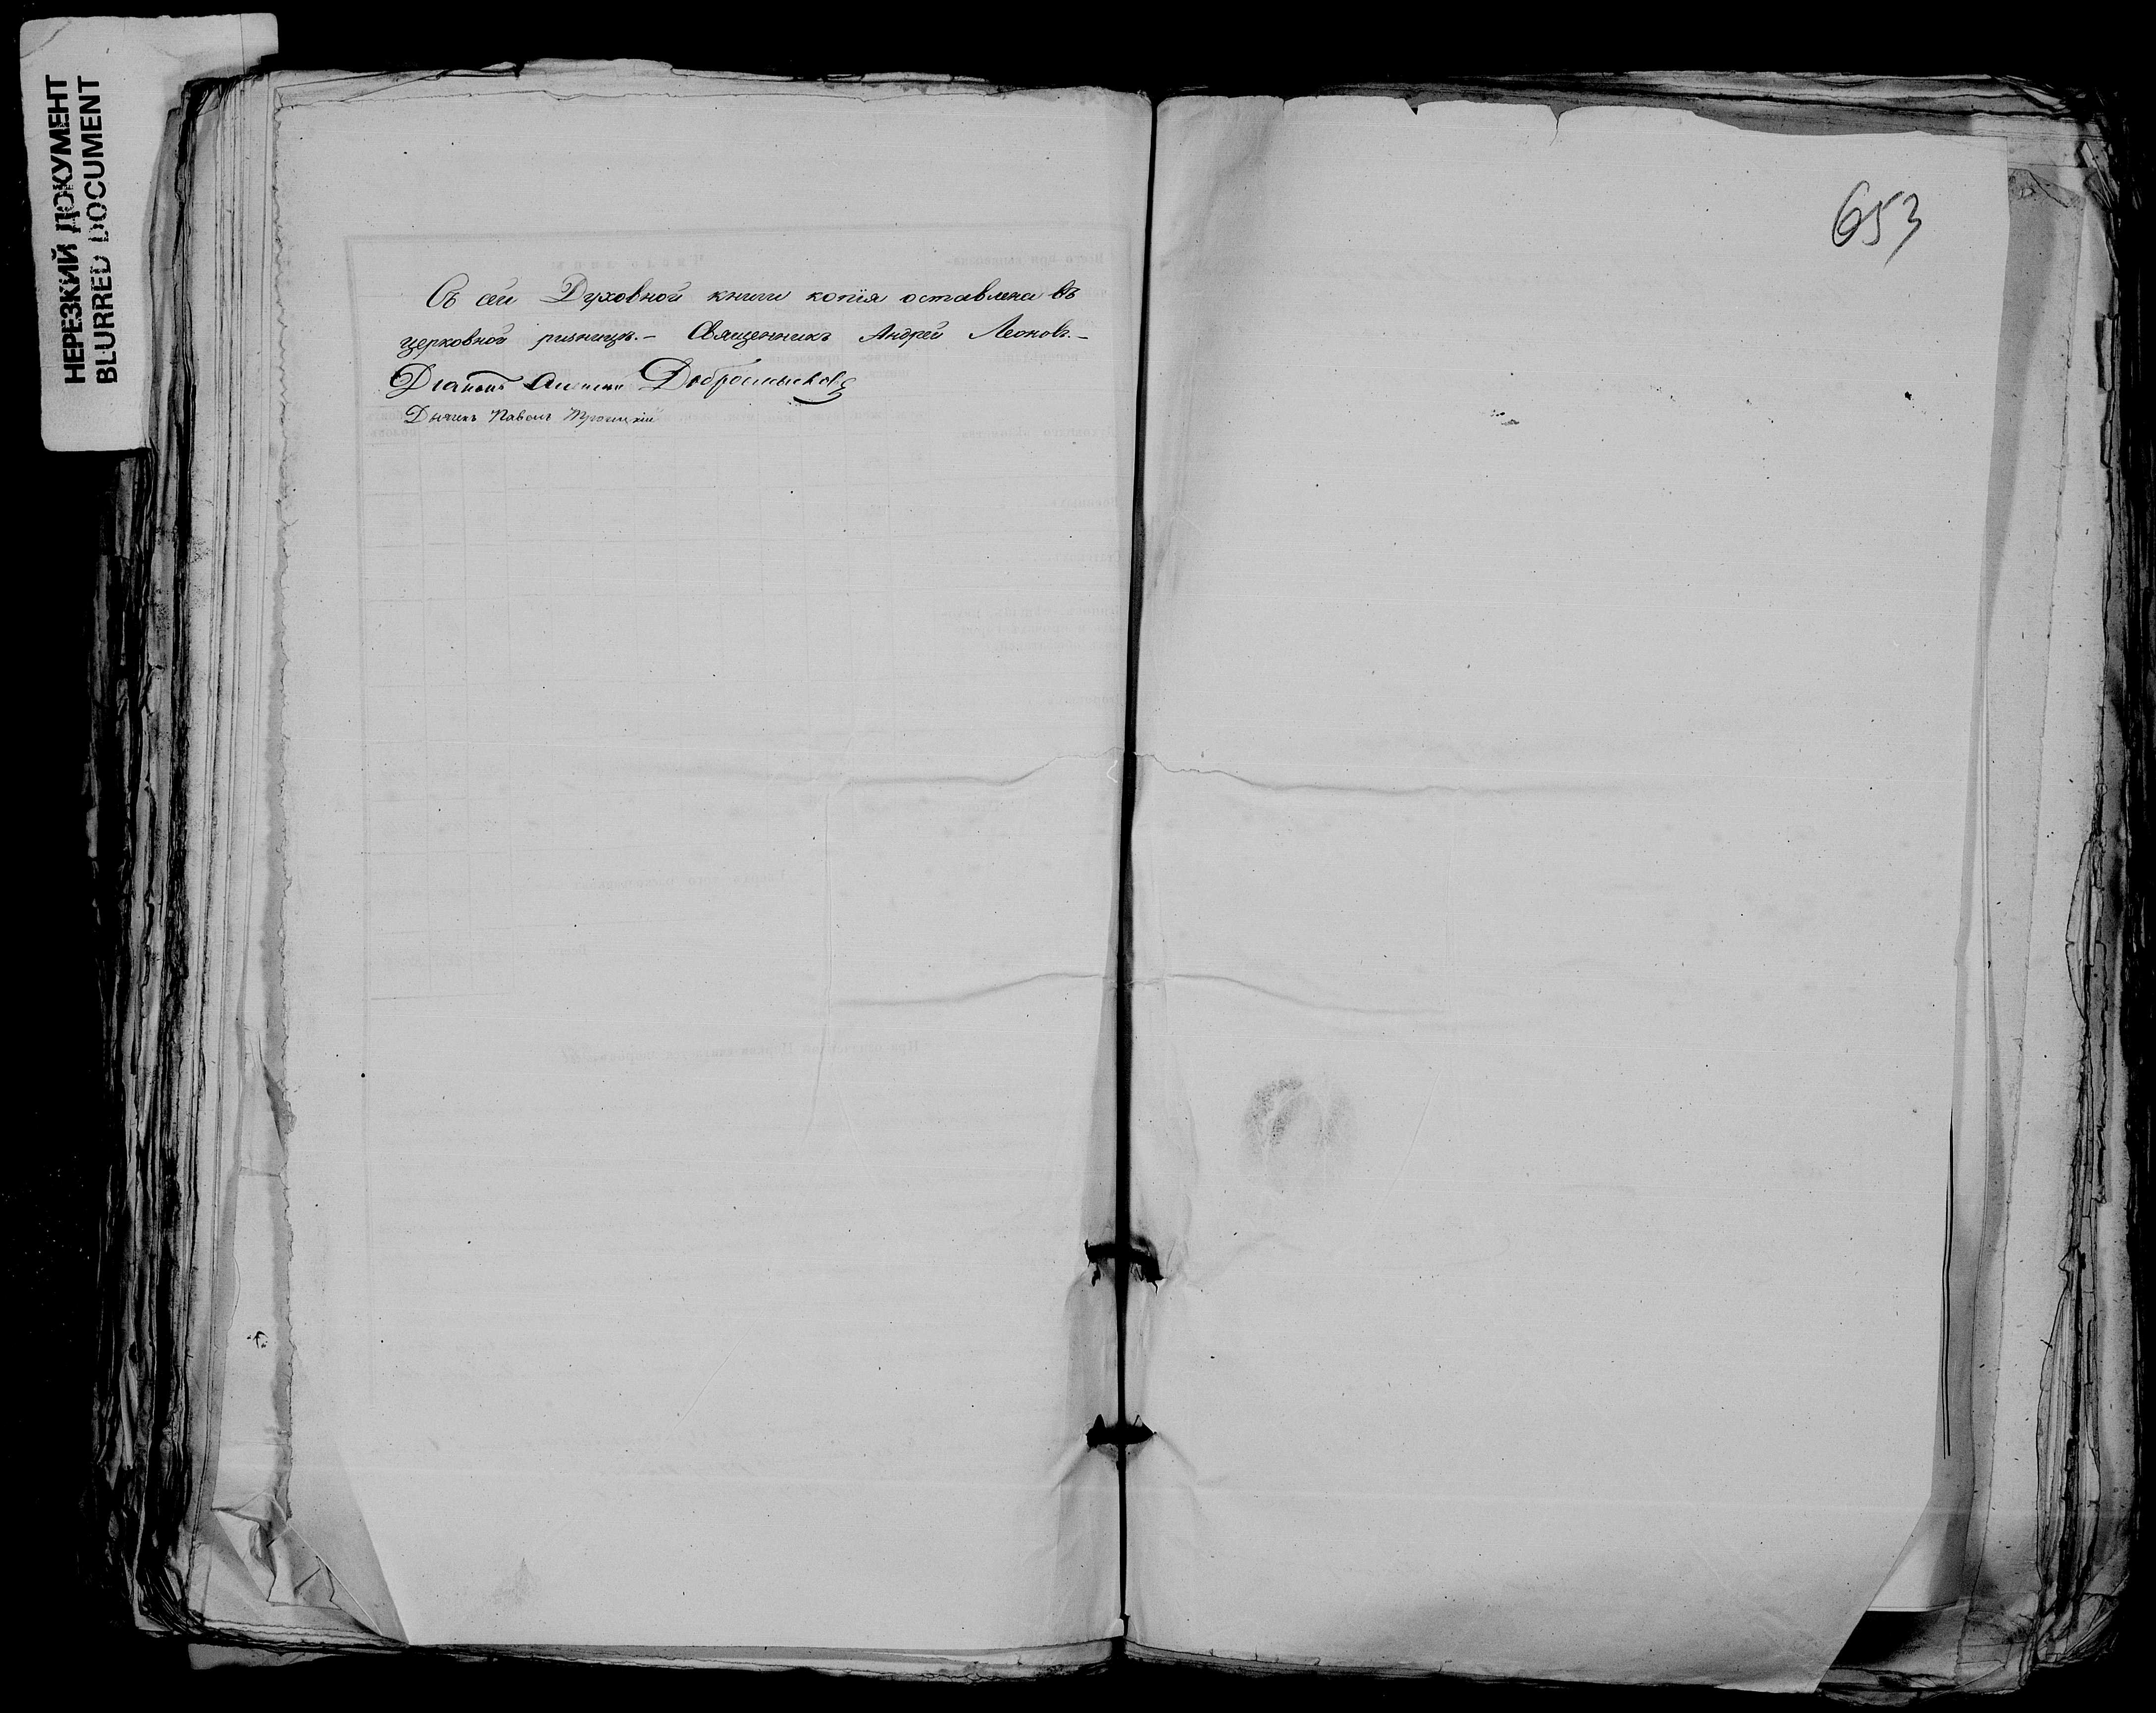 НЕРЕЗКИЙ ДОКУМЕНТ
BLURRED DOCUMENT
653
Съ сей Духовной книги копія оставлена въ
церковной ризницѣ. – Священникъ Андрей Леоновъ. –
Діаконъ Добросмысловъ
Дьячекъ Павелъ Троицкій